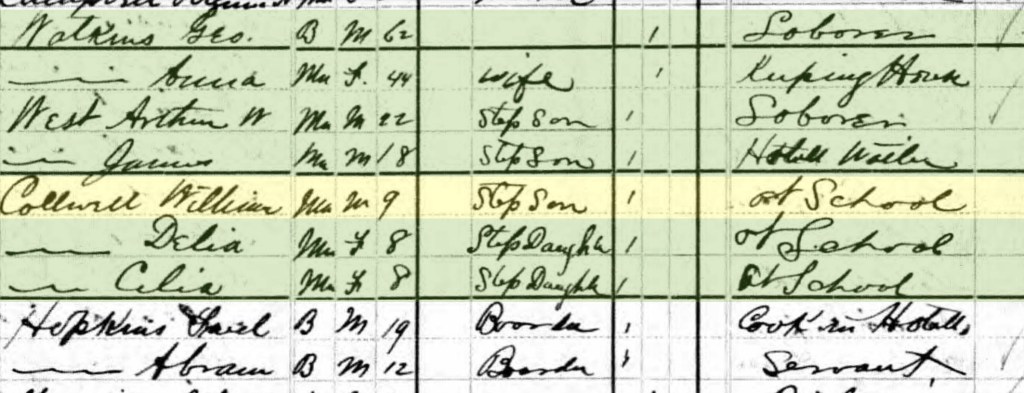 Watkins Geo. B M 62 1 Laborer
—— Anna Mu F. 44 wife 1 Keeping House
West Arthur W Mu M 22 Step Son 1 Laborer
—— James Mu M 18 Step Son 1 Hotell Waiter
Collwell William Mu M 9 Step Son 1 at School
—— Delia Mu F 8 Step Daughter 1 at School
—— Celia Mu F 8 Step Daughter 1 at School
Hopkins B M 19 Boarder 1 Cook in Hotell
—— Abram B M 12 Boarder 1 Servant.